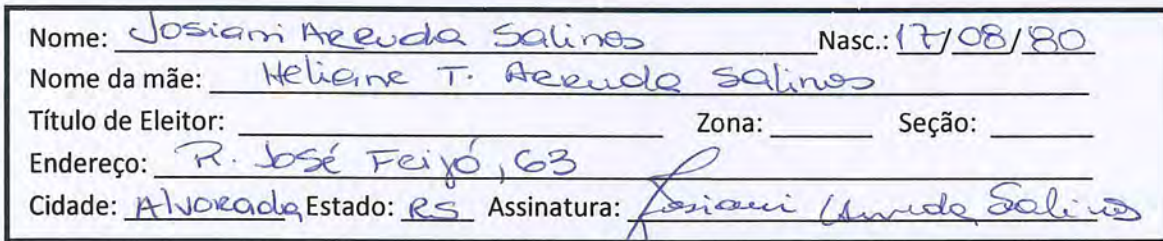 Nome: Josiani Arruda Salinos Nasc.: 17/08/80
Nome da mãe: Heliane T. Arruda Salinos
Título de Eleitor: Zona: Seção:
Endereço: R. José Feijó, 63
Cidade: Alvorada Estado: RS Assinatura: Josiani Arruda Salinos